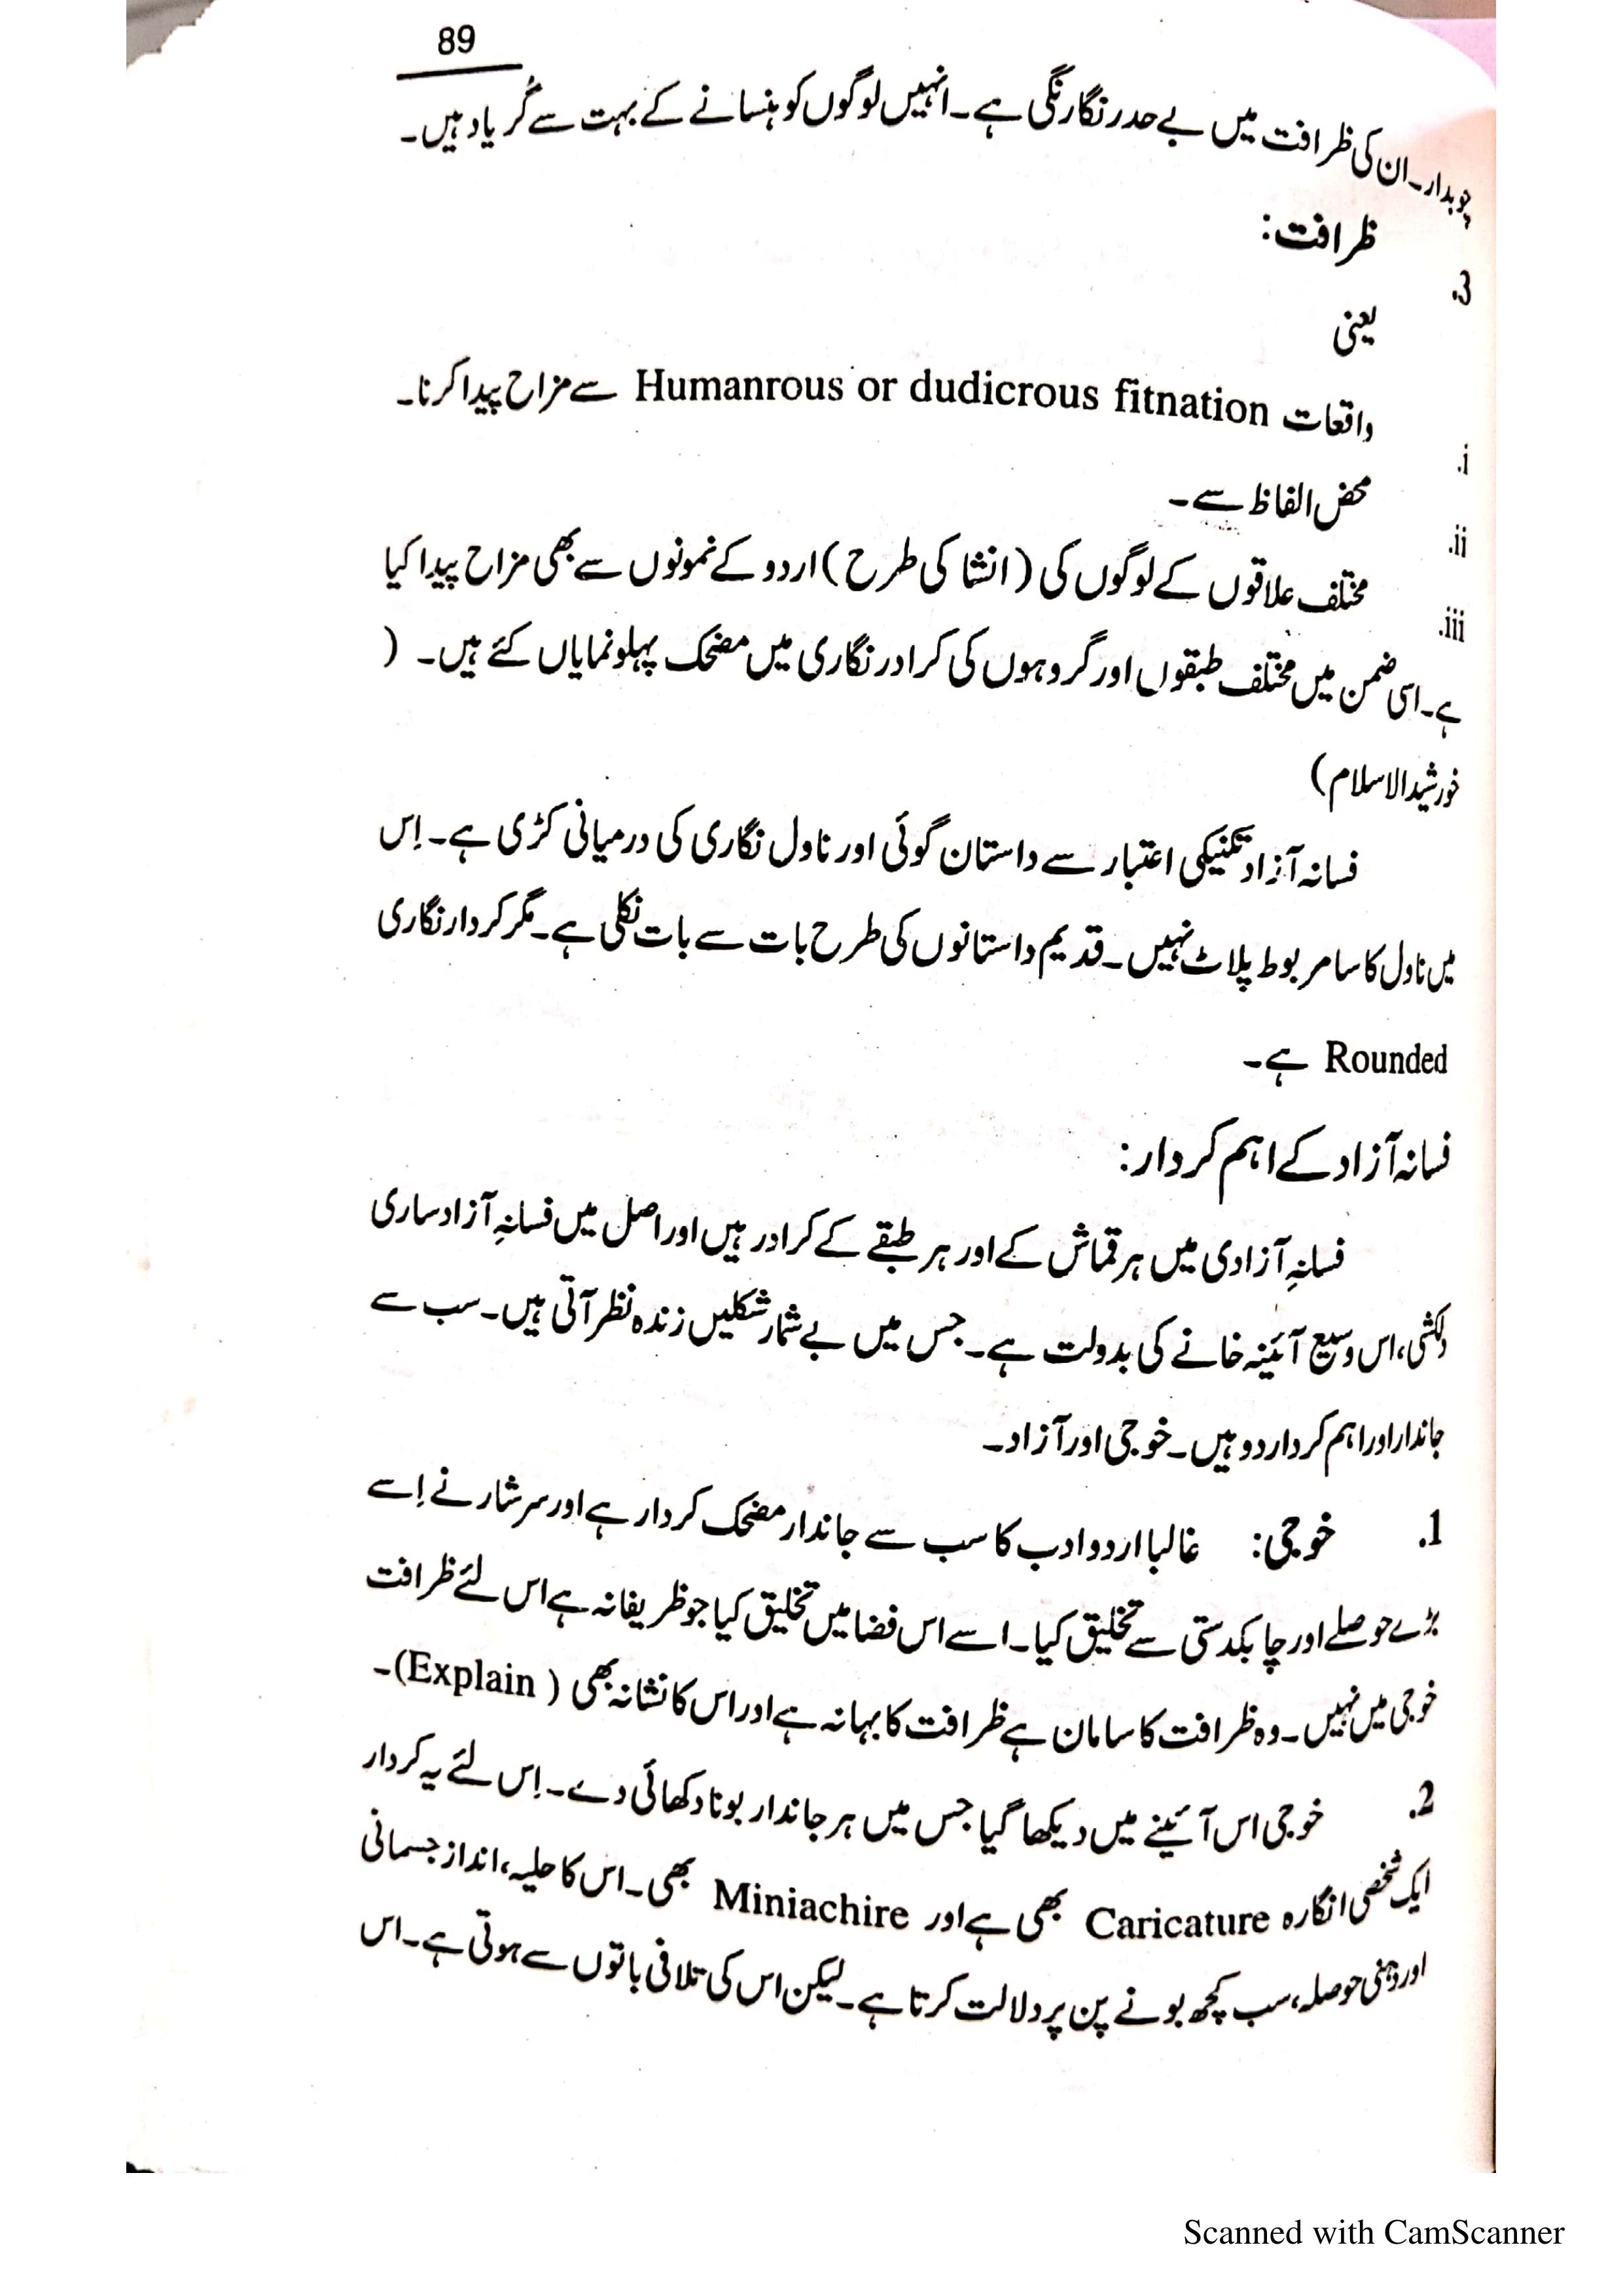 89
چوبدار۔ ان کی ظرافت میں بے حد رنگارنگی ہے۔ انہیں لوگوں کو ہنسانے کے بہت سے گُر یاد ہیں۔
3. ظرافت:
یعنی
i. واقعات Humanrous or dudicrous fitnation سے مزاح پیدا کرنا۔
ii. محض الفاظ سے۔
iii. مختلف علاقوں کے لوگوں کی (انشا کی طرح) اردو کے نمونوں سے بھی مزاح پیدا کیا
ہے۔ اسی ضمن میں مختلف طبقوں اور گروہوں کی کرادر نگاری میں مضحک پہلو نمایاں کئے ہیں۔ (
خورشید الاسلام)
فسانہ آزاد تکنیکی اعتبار سے داستان گوئی اور ناول نگاری کی درمیانی کڑی ہے۔ اِس
میں ناول کا سا مربوط پلاٹ نہیں۔ قدیم داستانوں کی طرح بات سے بات نکلی ہے۔ مگر کردار نگاری
Rounded ہے۔
فسانہ آزاد کے اہم کردار:
فسانۂِ آزادی میں ہر قماش کے اور ہر طبقے کے کرادر ہیں اور اصل میں فسانہِ آزاد ساری
دلکشی، اس وسیع آئینہ خانے کی بدولت ہے۔ جس میں بے شمار شکلیں زندہ نظر آتی ہیں۔ سب سے
جاندار اور اہم کردار دو ہیں۔ خوجی اور آزاد۔
1. خوجی: غالبا اردو ادب کا سب سے جاندار مضحک کردار ہے اور سرشار نے اِسے
بڑے حوصلے اور چابکدستی سے تخلیق کیا۔ اسے اس فضا میں تخلیق کیا جو ظریفانہ ہے اس لئے ظرافت
خوجی میں نہیں۔ وہ ظرافت کا سامان ہے ظرافت کا بہانہ ہے اور اس کا نشانہ بھی (Explain)۔
2. خوجی اس آئینے میں دیکھا گیا جس میں ہر جاندار بونا دکھائی دے۔ اِس لئے یہ کردار
ایک شخصی انگارہ Caricature بھی ہے اور Miniachire بھی۔ اس کا حلیہ، انداز جسمانی
اور ذہنی حوصلہ، سب کچھ بونے پن پر دلالت کرتا ہے۔ لیکن اس کی تلافی باتوں سے ہوتی ہے۔ اس
Scanned with CamScanner